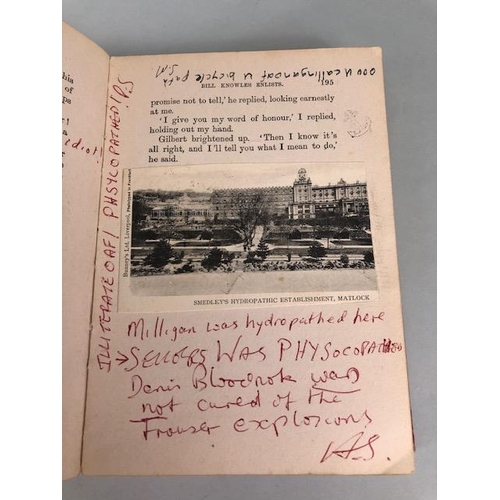 U calling an oaf u bicycle path
S.M
BILL KNOWLES ENLISTS. 195
promise not to tell,' he replied, looking earnestly
at me.
'I give you my word of honour,' I replied,
holding out my hand.
Gilbert brightened up. 'Then I know it's
all right, and I'll tell you what I mean to do,'
he said.
ILLITERATE OAF! PHSYCOPATHED! P.S
his
idiot!
SMEDLEY'S HYDROPATHIC ESTABLISHMENT, MATLOCK
Milligan was hydropathed here
→SELLERS WAS PHYSOCOPATHED
Denis Bloodnok was
not cured of the
Trouser explosions